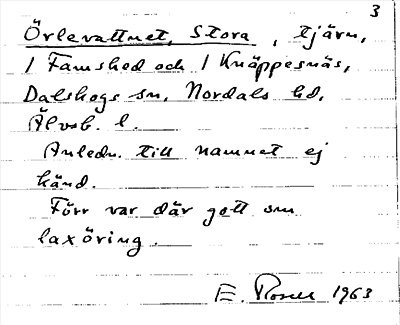 3
Örlevattnet, Stora, tjärn,
/ Famshed och / Knäppesnäs,
Dalskogs sn, Nordals hd,
Älvsb. l.
Anledn. till namnet ej
känd.
Förr var där gott om
laxöring.
E. Rosell 1963